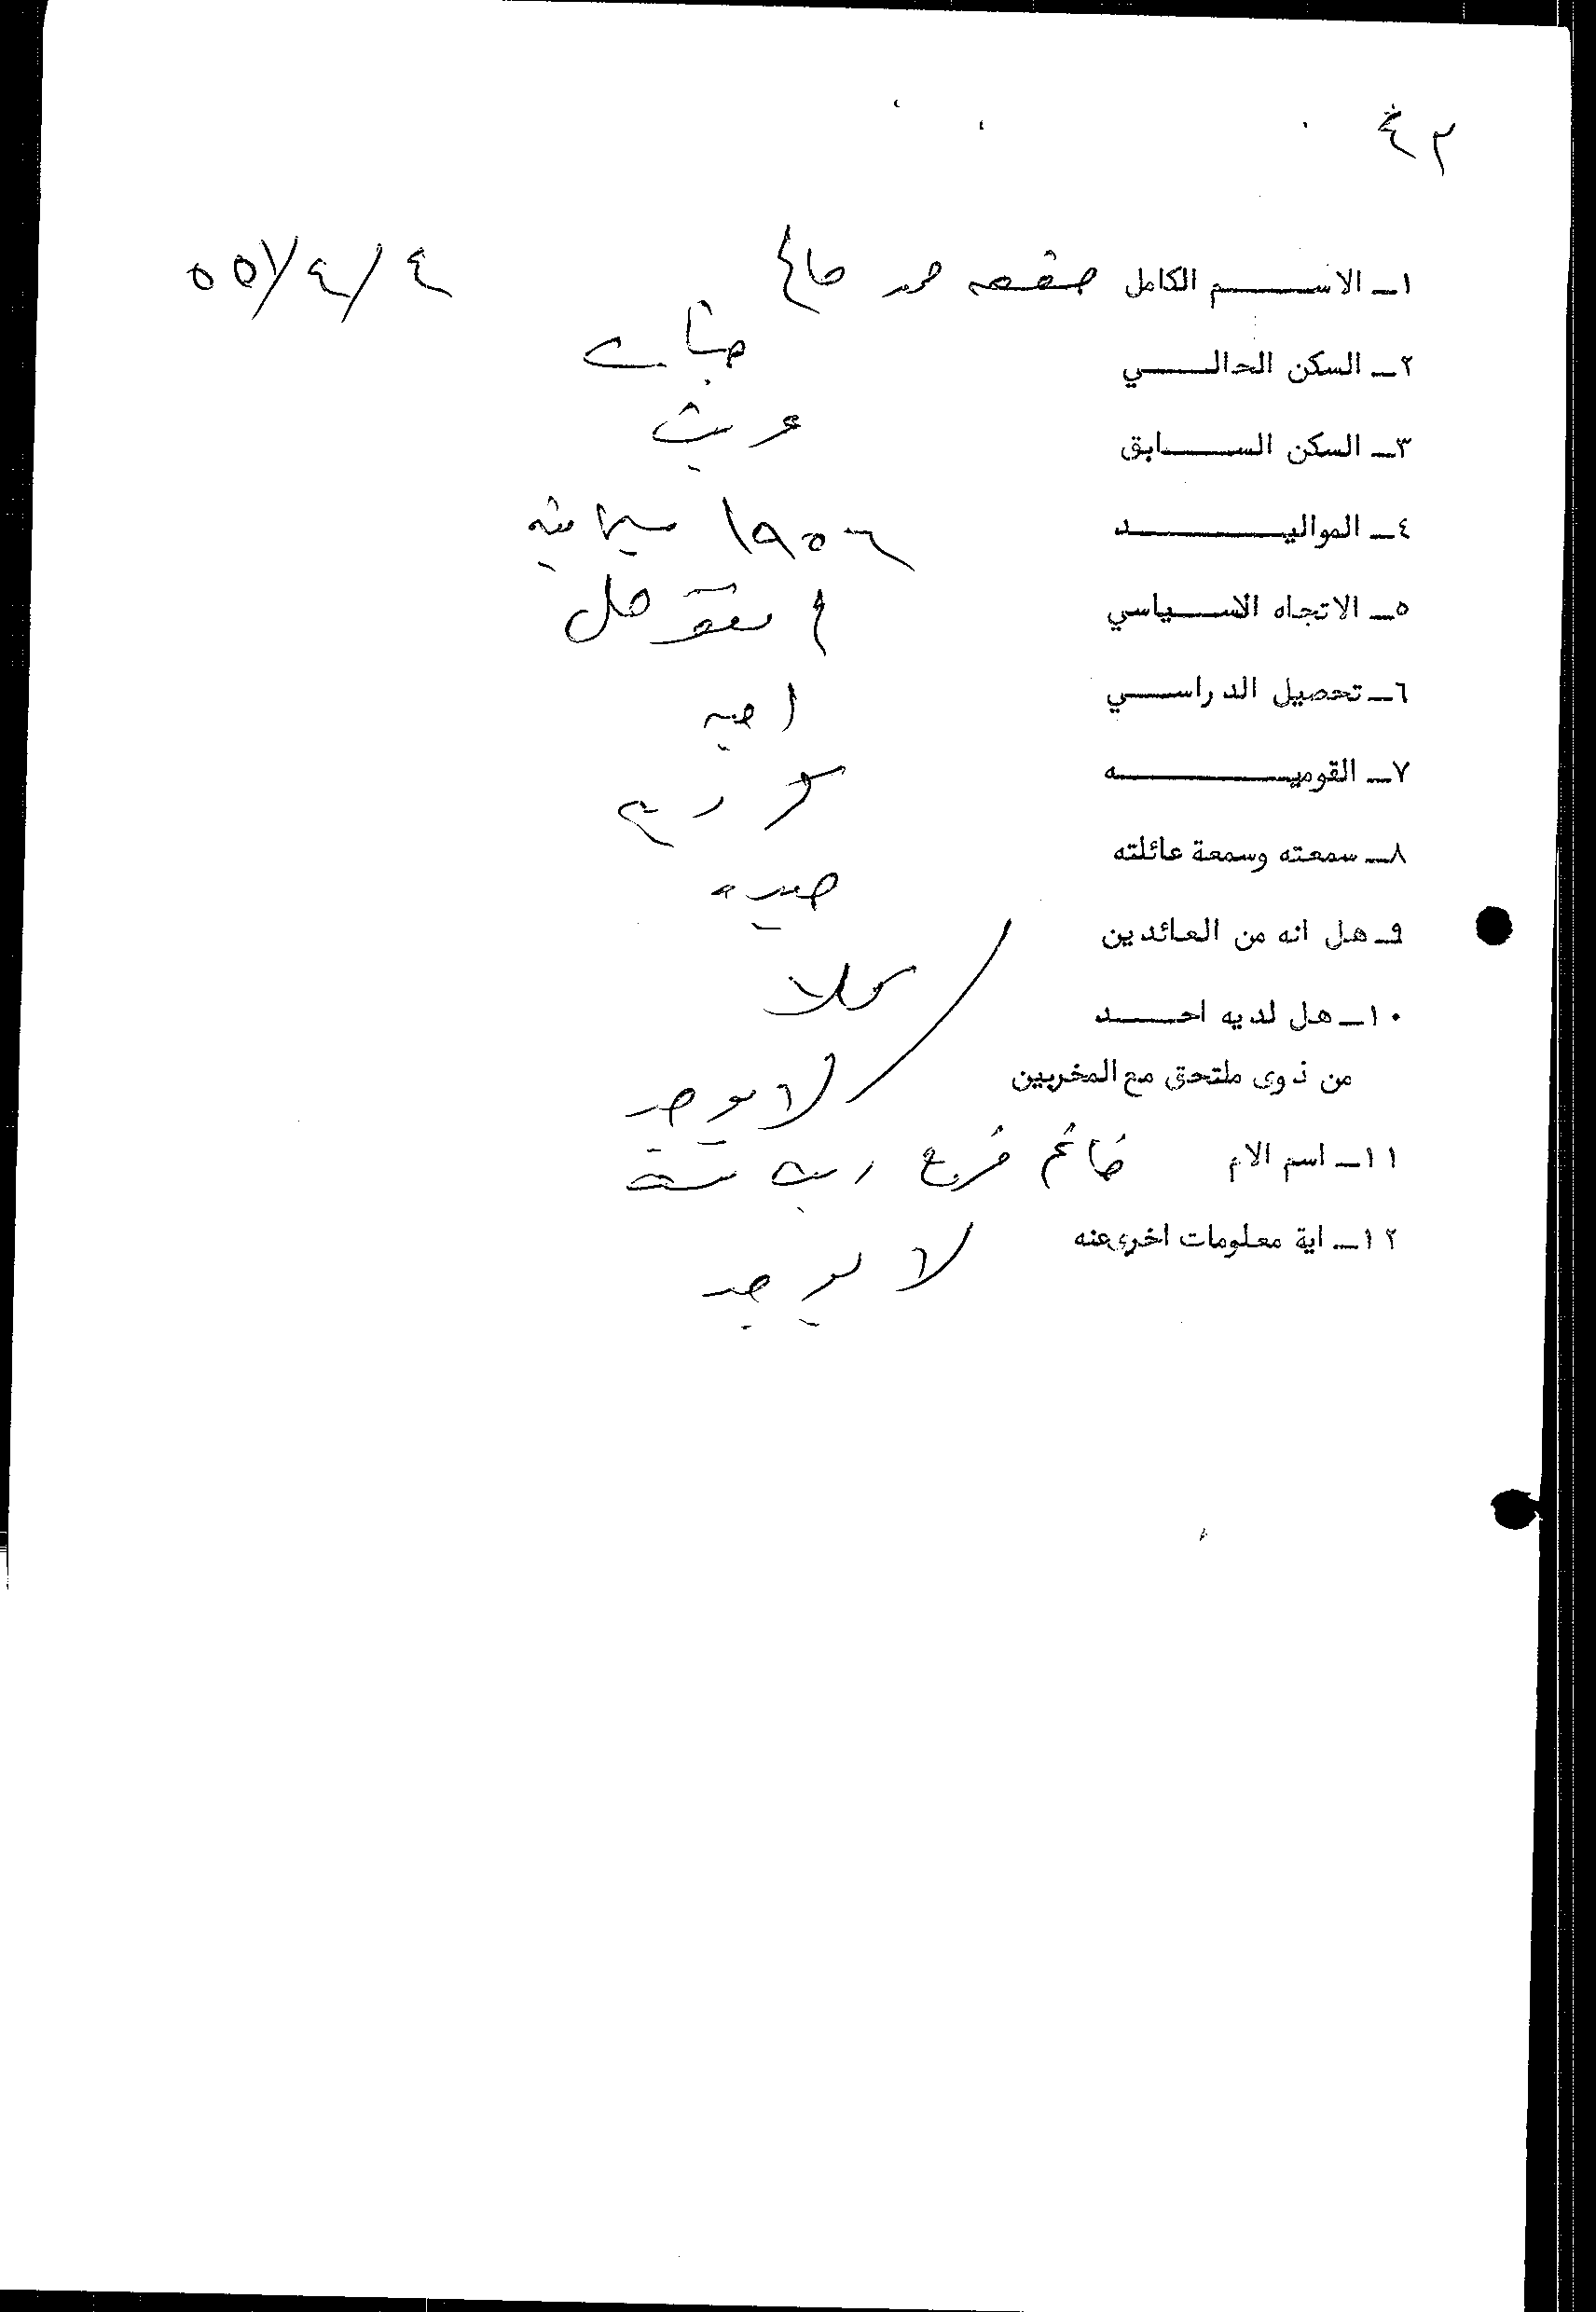 ٤٢
١ــ الاســـم الكامل محمد صالح ٥٥١/٤/٤
٢ــ السكن الحالــــي
٣ــ السكن الســـابق
٤ــ المواليــــــــد ١٩٥٦ سليمانيه
٥ــ الاتجاه السـياسي مستقل
٦ــ تحصيل الدراســـي اميه
٧ــ القوميــــــــه كرديه
٨ــ سمعته وسمعة عائلته جيده
٩ــ هل انه من العائدين كلا
١٠ــ هل لديه احـــد
من ذوى ملتحق مع المخربين لا يوجد
١١ــ اسم الام خانم فرج ربة بيت
١٢ــ اية معلومات اخرى عنه لا يوجد